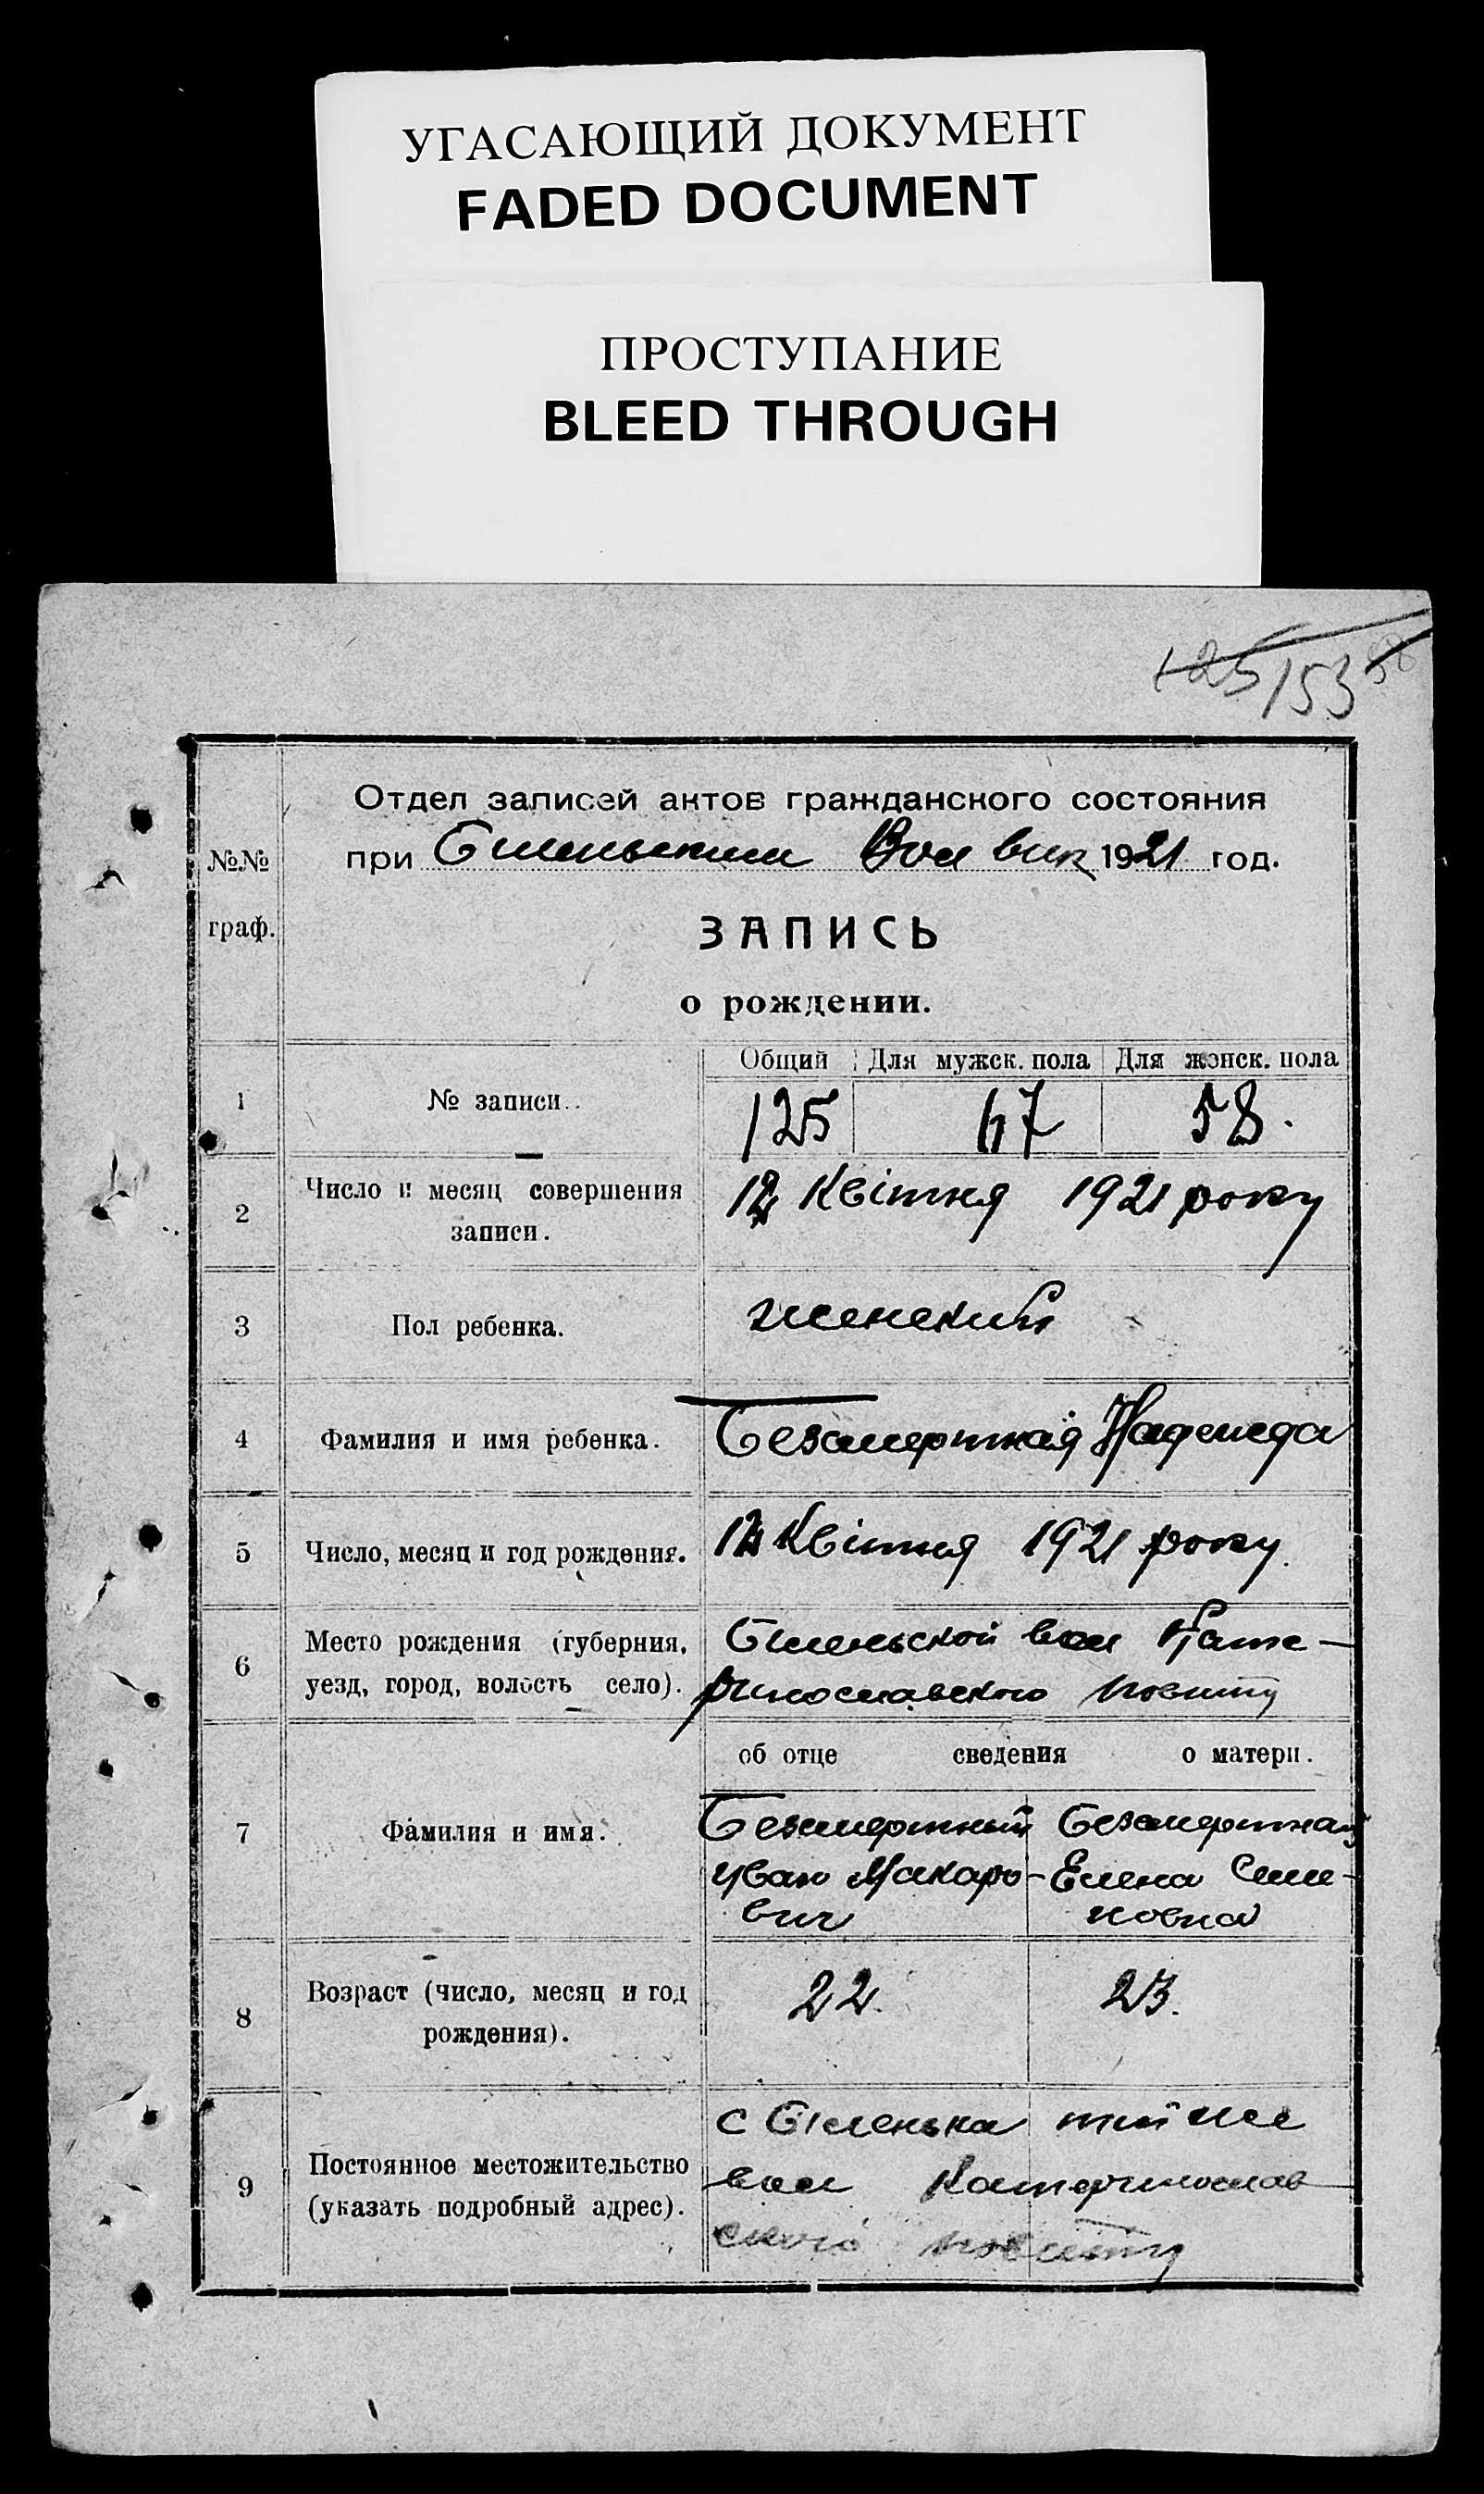 УГАСАЮЩИЙ ДОКУМЕНТ
FADED DOCUMENT
ПРОСТУПАНИЕ
BLEED THROUGH
125/153 58
Отдел записей актов гражданского состояния
№№ при Біленьским Вол вик 1921 год.
граф.
ЗАПИСЬ
о рождении.
Общий Для мужск. пола Для женск. пола
1 № записи. 125 67 58.
2 Число и месяц совершения Квітня 1921 року
записи.
3 Пол ребенка. женский
4 Фамилия и имя ребенка. Безсмертная Надежда
5 Число, месяц и год рождения. Квітня 1921 року.
6 Место рождения (губерния, Біленьской вол Кате-
уезд, город, волость село). ринославского повиту
об отце сведения о матери.
7 Фамилия и имя. Безсмертный Безсмертная
Иван Макаро- Елена Сили-
вич новна
8 Возраст (число, месяц и год 22. 23.
рождения).
с Біленька тий же
9 Постоянное местожительство вол Катеринослав
(указать подробный адрес). ского повиту